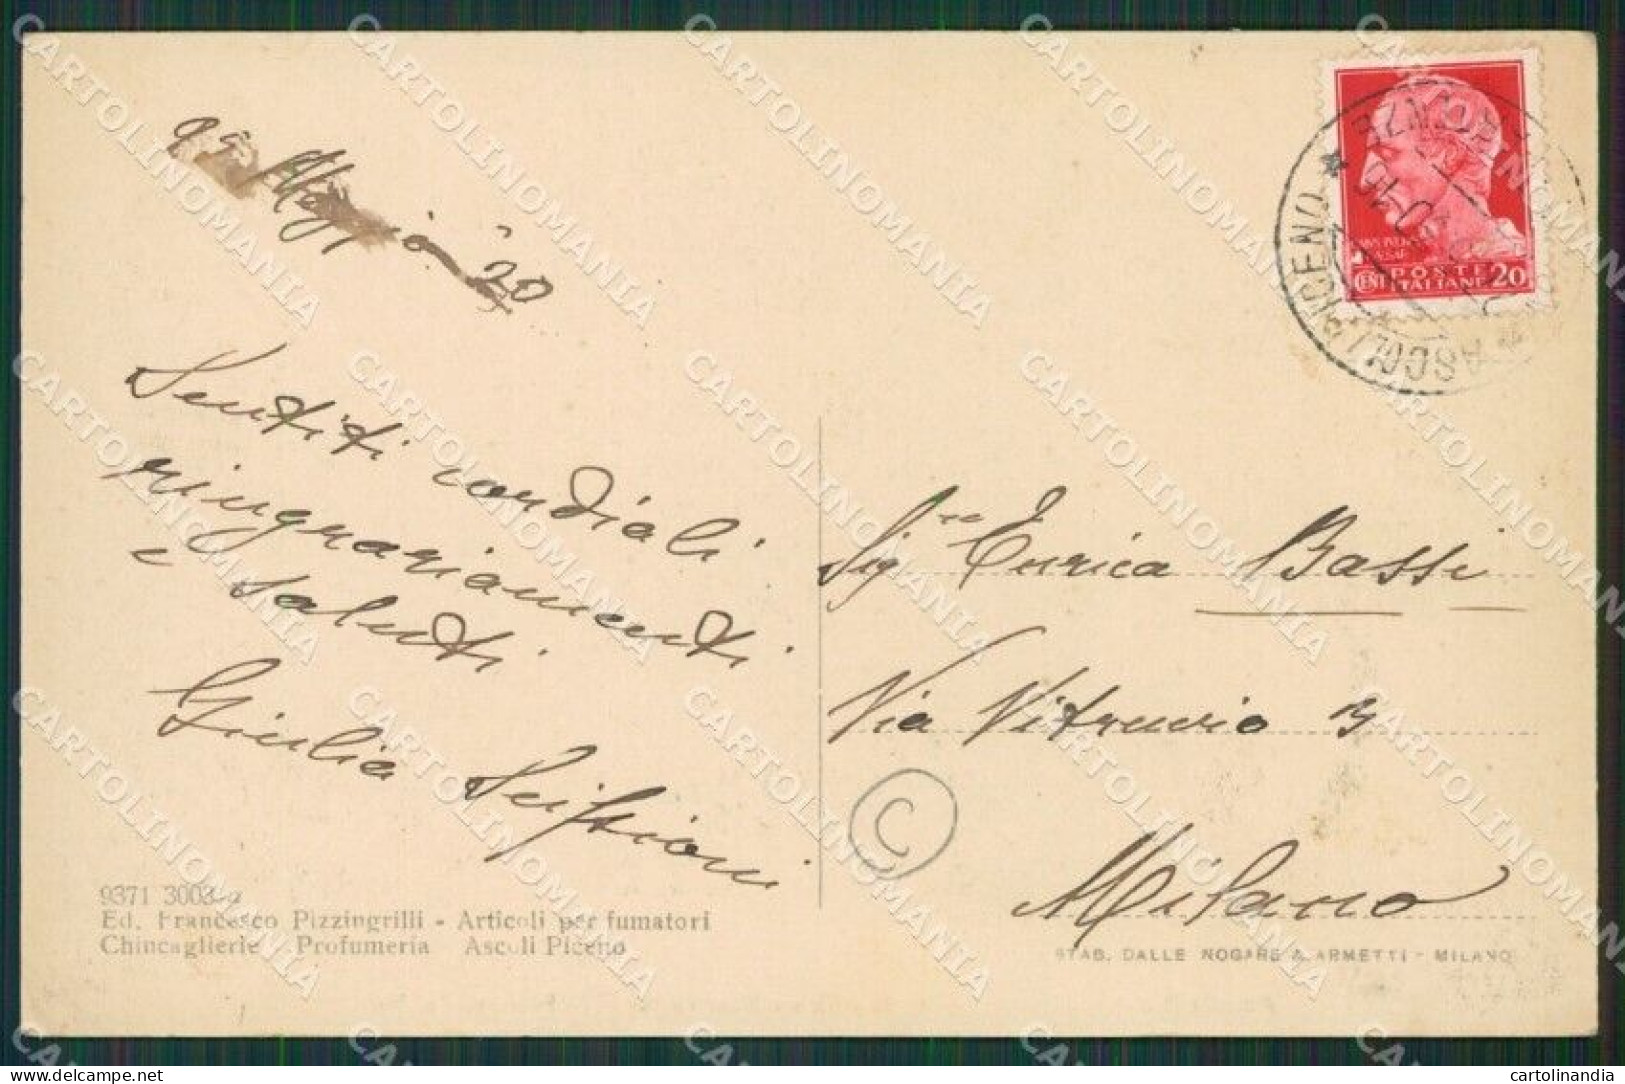 Maggio
20
Sentiti cordiali
ringraziamenti
e saluti
Giulia
9371 3003-a
Ed. Francesco Pizzingrilli - Articoli per fumatori
Chincaglierie - Profumeria Ascoli Piceno
ASCOLI PICENO
POSTE
ITALIANE
CENT 20
Sig.ra Enrica Bassi
Via Vitruvio
Milano
C
STAB. DALLE NOGARE & ARMETTI - MILANO
CARTOLINOMANIA
delcampe.net
cartolinandia